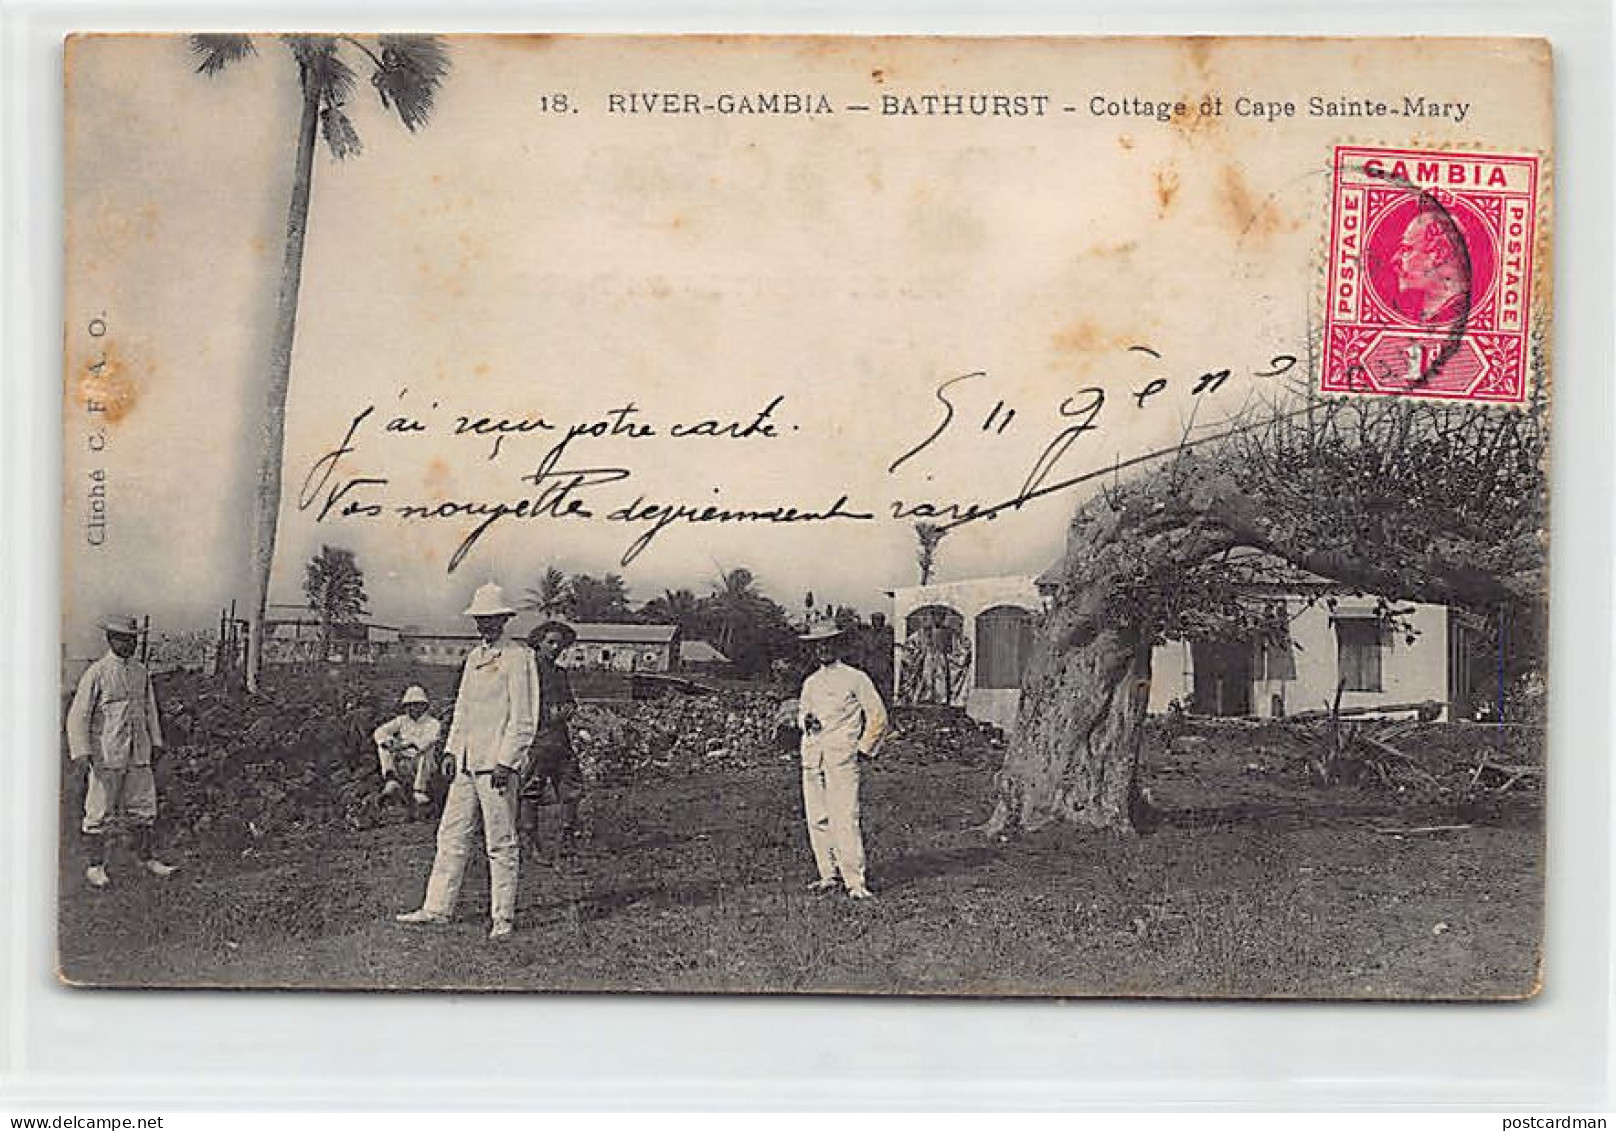 18. RIVER-GAMBIA — BATHURST - Cottage of Cape Sainte-Mary
GAMBIA
POSTAGE
POSTAGE
1d
Cliché C. F. A. O.
j'ai reçu votre carte.
Vos nouvelles deviennent rares
Eugène
postcardman